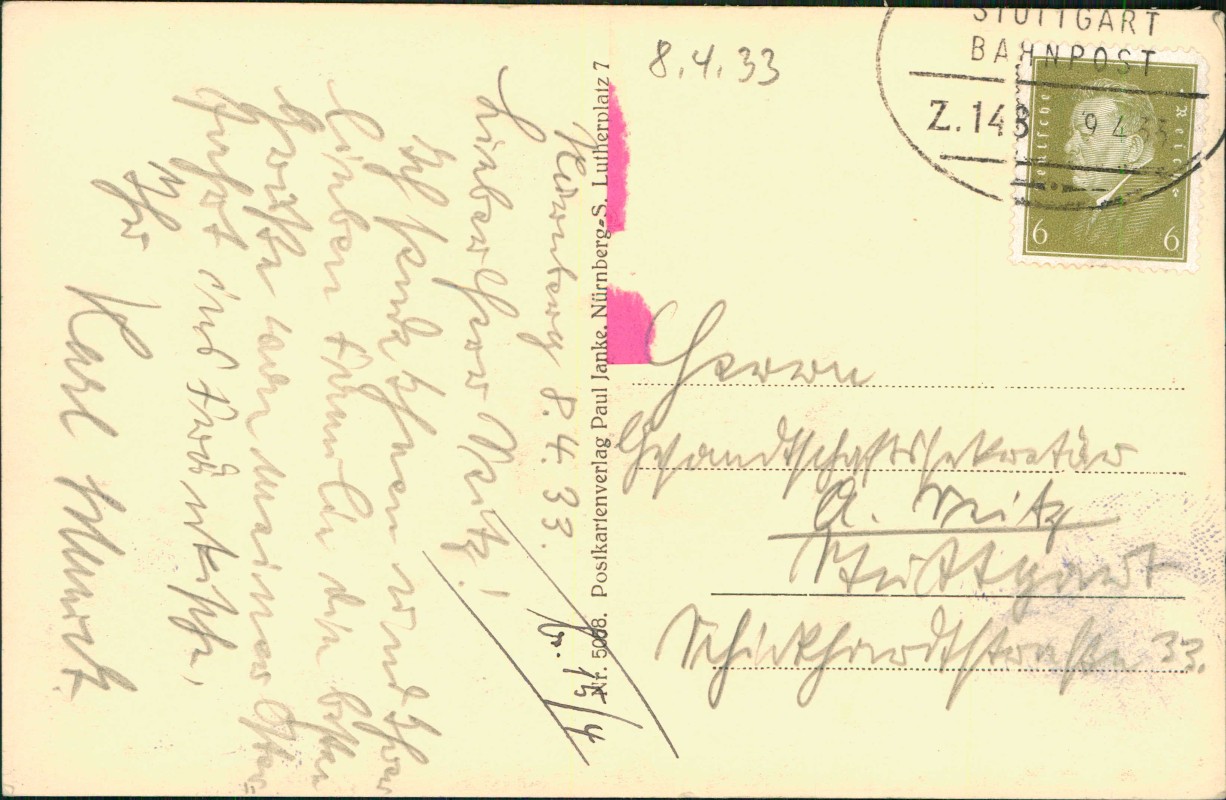 8.4.33
STUTTGART
BAHNPOST
Z.148 9 4 33
Deutsches Reich
6 6
Herrn
Gesandtschaftssekretär
A. Reitz
Stuttgart
Schickhardtstraße 33.
Nr. 5068. Postkartenverlag Paul Janke, Nürnberg-S. Lutherplatz 7
Nürnberg 8.4.33.
Lieber Herr Reitz!
Ich sende Ihnen und Ihrer
lieben Familie die besten
Grüße von meiner Oster-
fahrt ins
Ihr
Karl
15/4